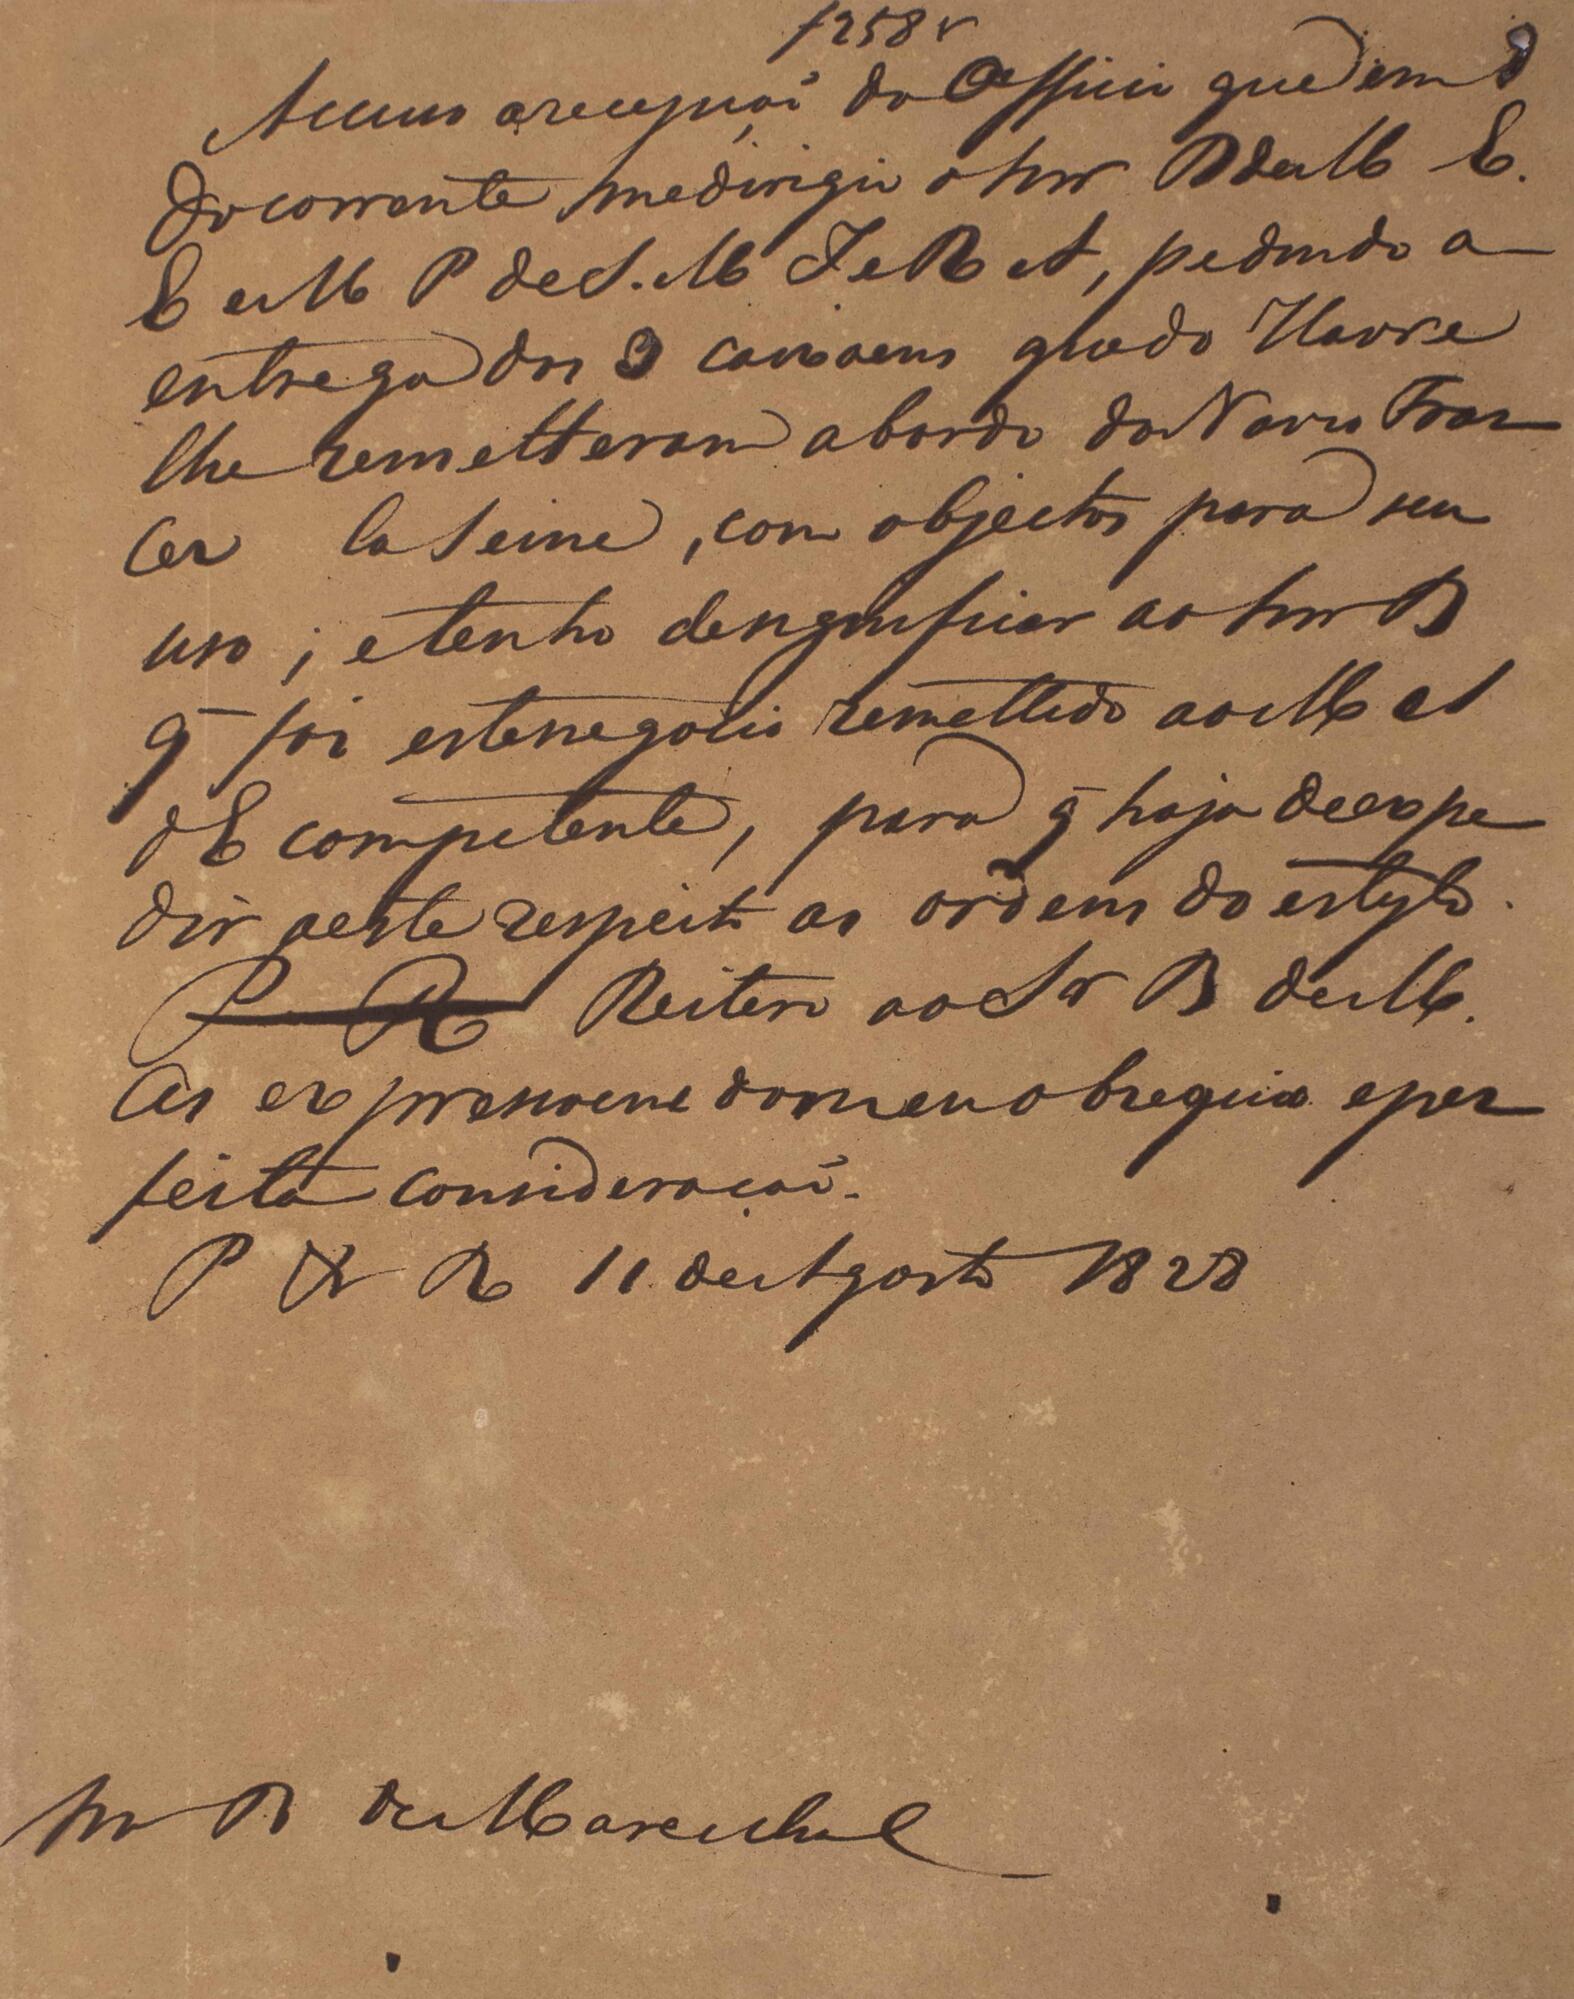 f 258 v
Accuso a recepçaõ do Officio que em 9
do corrente me dirigiu o Snr B de M E.
E e M P de S. M I e R A, pedindo a
entrega dos 3 caixoens que do Havre
lhe remetteram a bordo do Navio Fran
cez la Seine, com objectos para seu
uso; e tenho de significar ao Snr B
q̃ foi este negocio remettido ao M e S
d'E competente, para q̃ haja de expe
dir a este respeito as ordens do estylo.
P R Reitero ao Sr B de M.
as expressoens do meu obsequio e per
feita consideraçaõ.
P do R 11 de Agosto 1828
Snr B de Mareschal